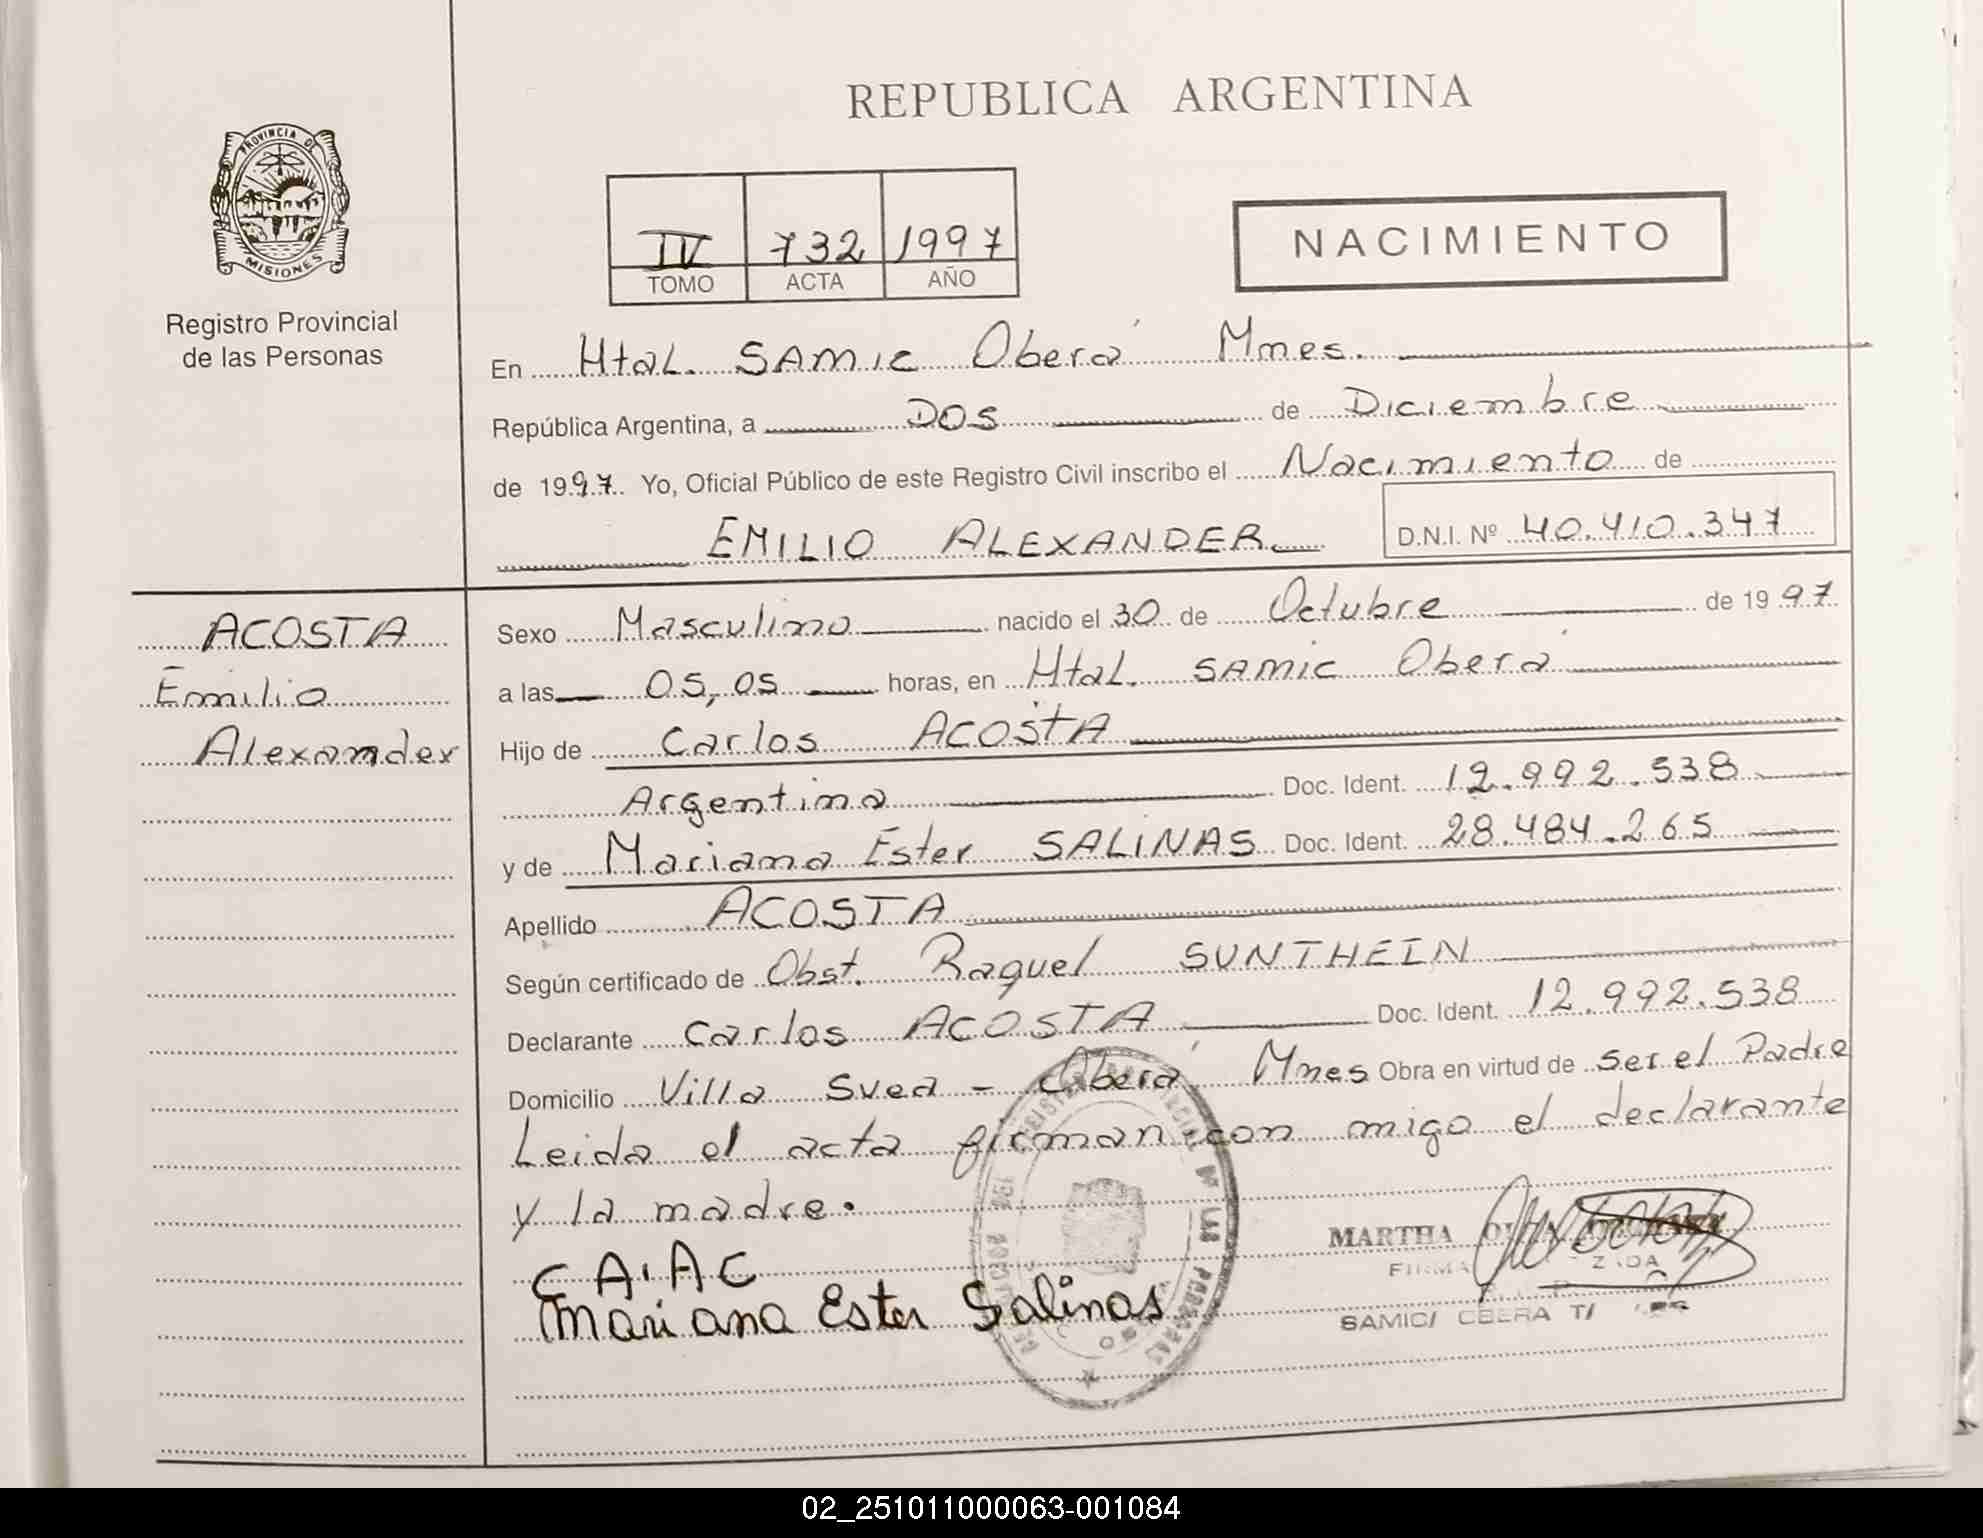 REPUBLICA ARGENTINA
PROVINCIA DE
MISIONES
Registro Provincial
de las Personas
IV 732 1997
TOMO ACTA AÑO
NACIMIENTO
En Htal. SAMIC Oberá Mnes.
República Argentina, a DOS de Diciembre
de 1997. Yo, Oficial Público de este Registro Civil inscribo el Nacimiento de
EMILIO ALEXANDER. D.N.I. Nº 40.410.347
ACOSTA
Emilio
Alexander
Sexo Masculino nacido el 30 de Octubre de 1997
a las 05,05 horas, en Htal. SAMIC Oberá
Hijo de Carlos ACOSTA
Argentina Doc. Ident. 12.992.538
y de Mariana Ester SALINAS Doc. Ident. 28.484.265
Apellido ACOSTA
Según certificado de Obst. Raquel SUNTHEIN
Declarante Carlos ACOSTA Doc. Ident. 12.992.538
Domicilio Villa Svea - Oberá Mnes Obra en virtud de ser el Padre
Leida el acta firman con migo el declarante
y la madre.
CA'AC
Mariana Ester Salinas
MARTHA
SAMIC/ OBERA
02_251011000063-001084